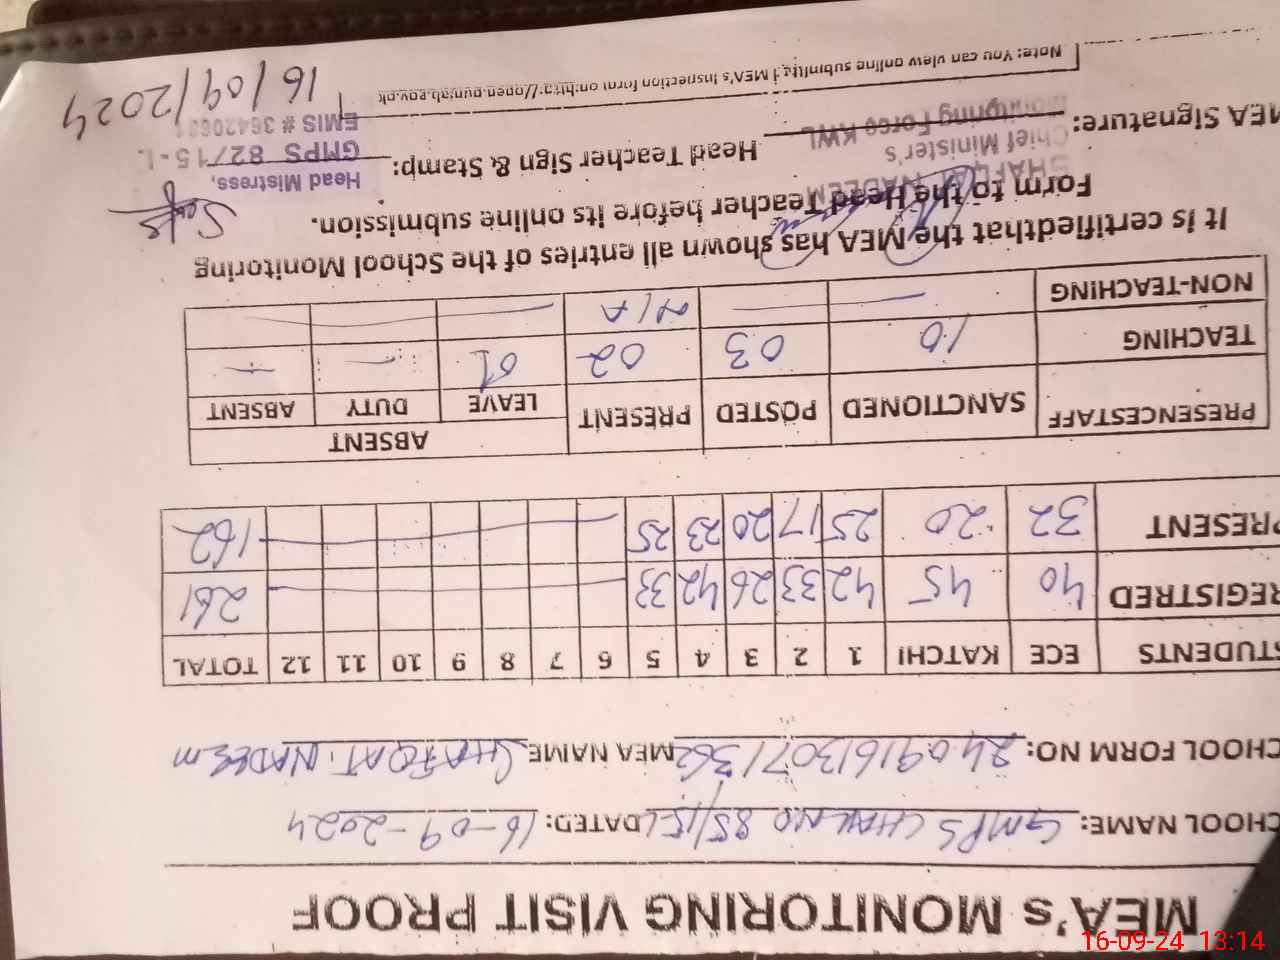 MEA's MONITORING VISIT PROOF
CHOOL NAME: GMPS CHAK NO 85/15L DATED: 16-09-2024
CHOOL FORM NO: 24091613071362 MEA NAME SHAFQAT NADEEM
STUDENTS ECE KATCHI 1 2 3 4 5 6 7 8 9 10 11 12 TOTAL
REGISTRED 40 45 42 33 26 42 33 261
PRESENT 32 20 25 17 20 23 25 162
PRESENCESTAFF SANCTIONED POSTED PRESENT ABSENT
LEAVE DUTY ABSENT
TEACHING 10 03 02 01
NON-TEACHING N/A
It is certifiedthat the MEA has shown all entries of the School Monitoring
Form to the Head Teacher before its online submission.
SHAFQAT NADEEM
Chief Minister's
Monitoring Force KWL
MEA Signature: Head Teacher Sign & Stamp:
Head Mistress,
GMPS 82/15-L
EMIS #
16/09/2024
Note: You can view online submitted MEA's inspection form on:http://open.punjab.gov.pk
16-09-24 13:14